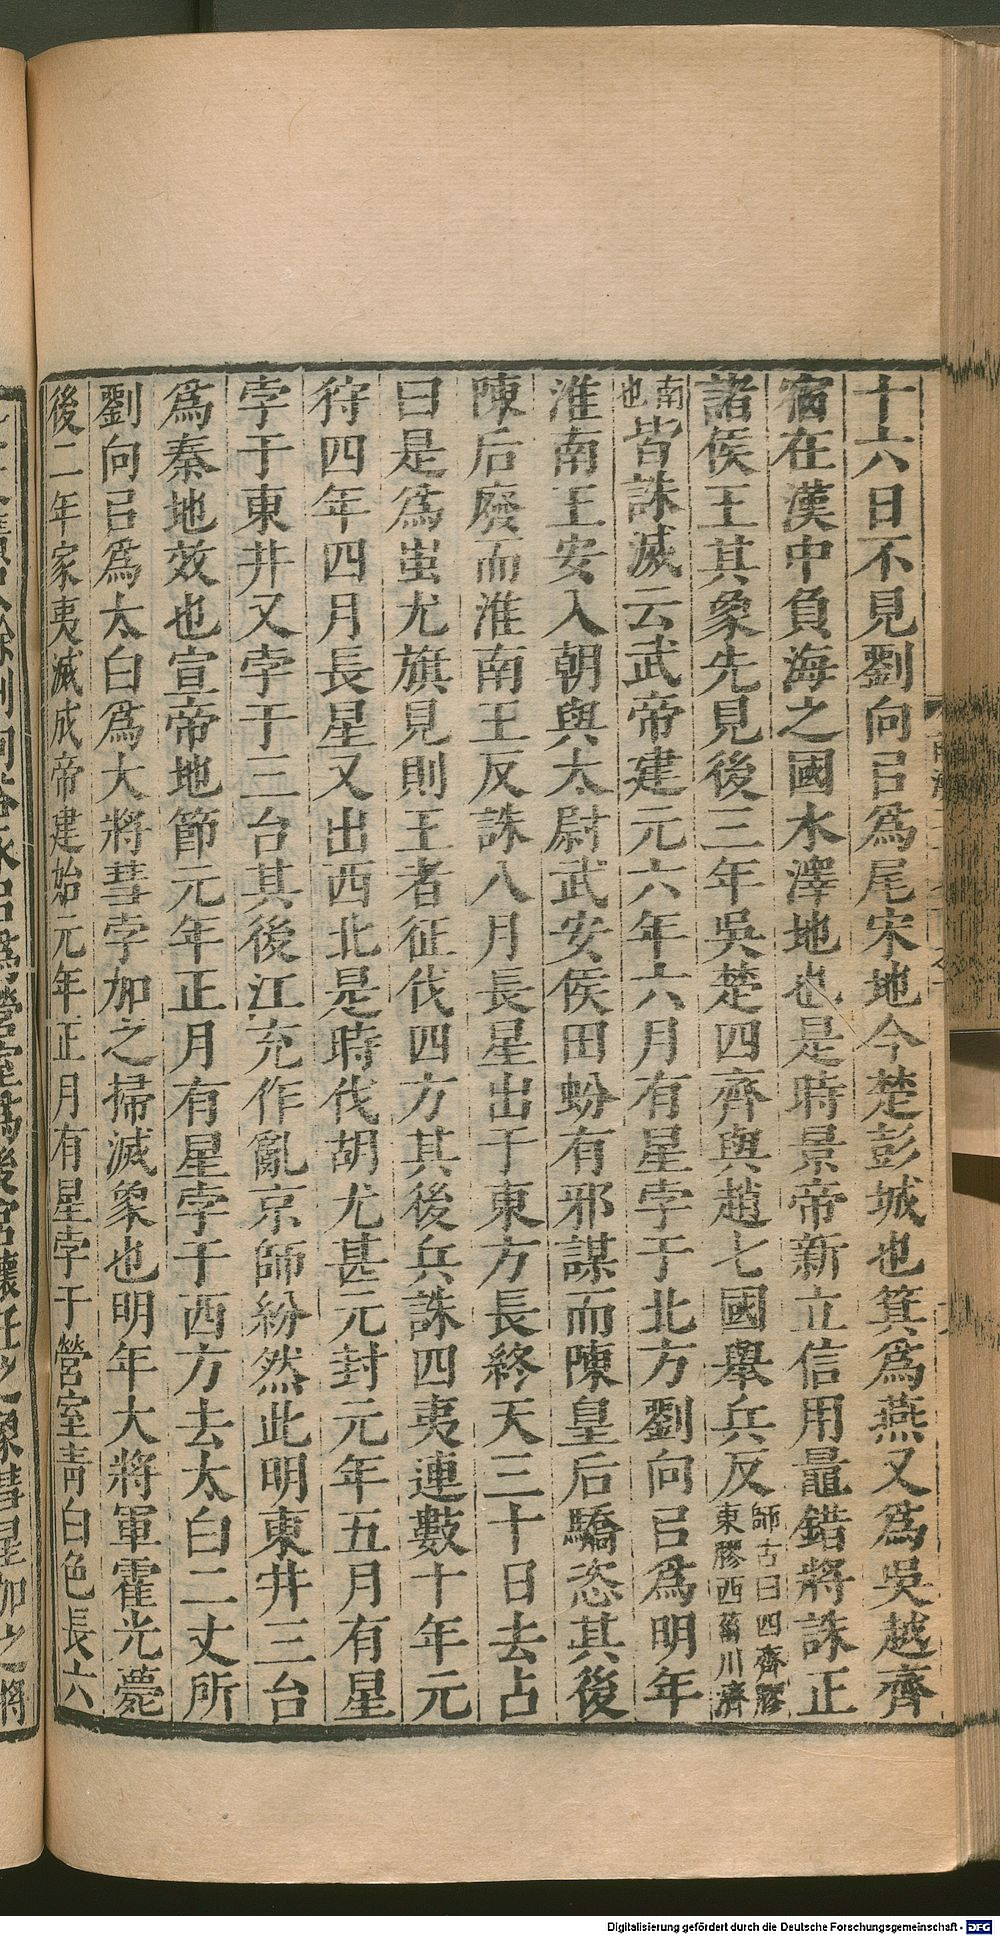 十六日不見劉向㠯爲尾宋地今楚彭城也箕爲燕又爲吳越齊
宿在漢中負海之國水澤地也是時景帝新立信用鼂錯將誅正
諸侯王其象先見後三年吳楚四齊與趙七國舉兵反師古曰四齊膠東膠西菑川濟
南也皆誅滅云武帝建元六年六月有星孛于北方劉向㠯爲明年
淮南王安入朝與太尉武安侯田蚡有邪謀而陳皇后驕恣其後
陳后廢而淮南王反誅八月長星出于東方長終天三十日去占
曰是爲蚩尤旗見則王者征伐四方其後兵誅四夷連數十年元
狩四年四月長星又出西北是時伐胡尤甚元封元年五月有星
孛于東井又孛于三台其後江充作亂京師紛然此明東井三台
爲秦地效也宣帝地節元年正月有星孛于西方去太白二丈所
劉向㠯爲太白爲大將彗孛加之掃滅象也明年大將軍霍光薨
後二年家夷滅成帝建始元年正月有星孛于營室青白色長六
Digitalisierung gefördert durch die Deutsche Forschungsgemeinschaft - DFG